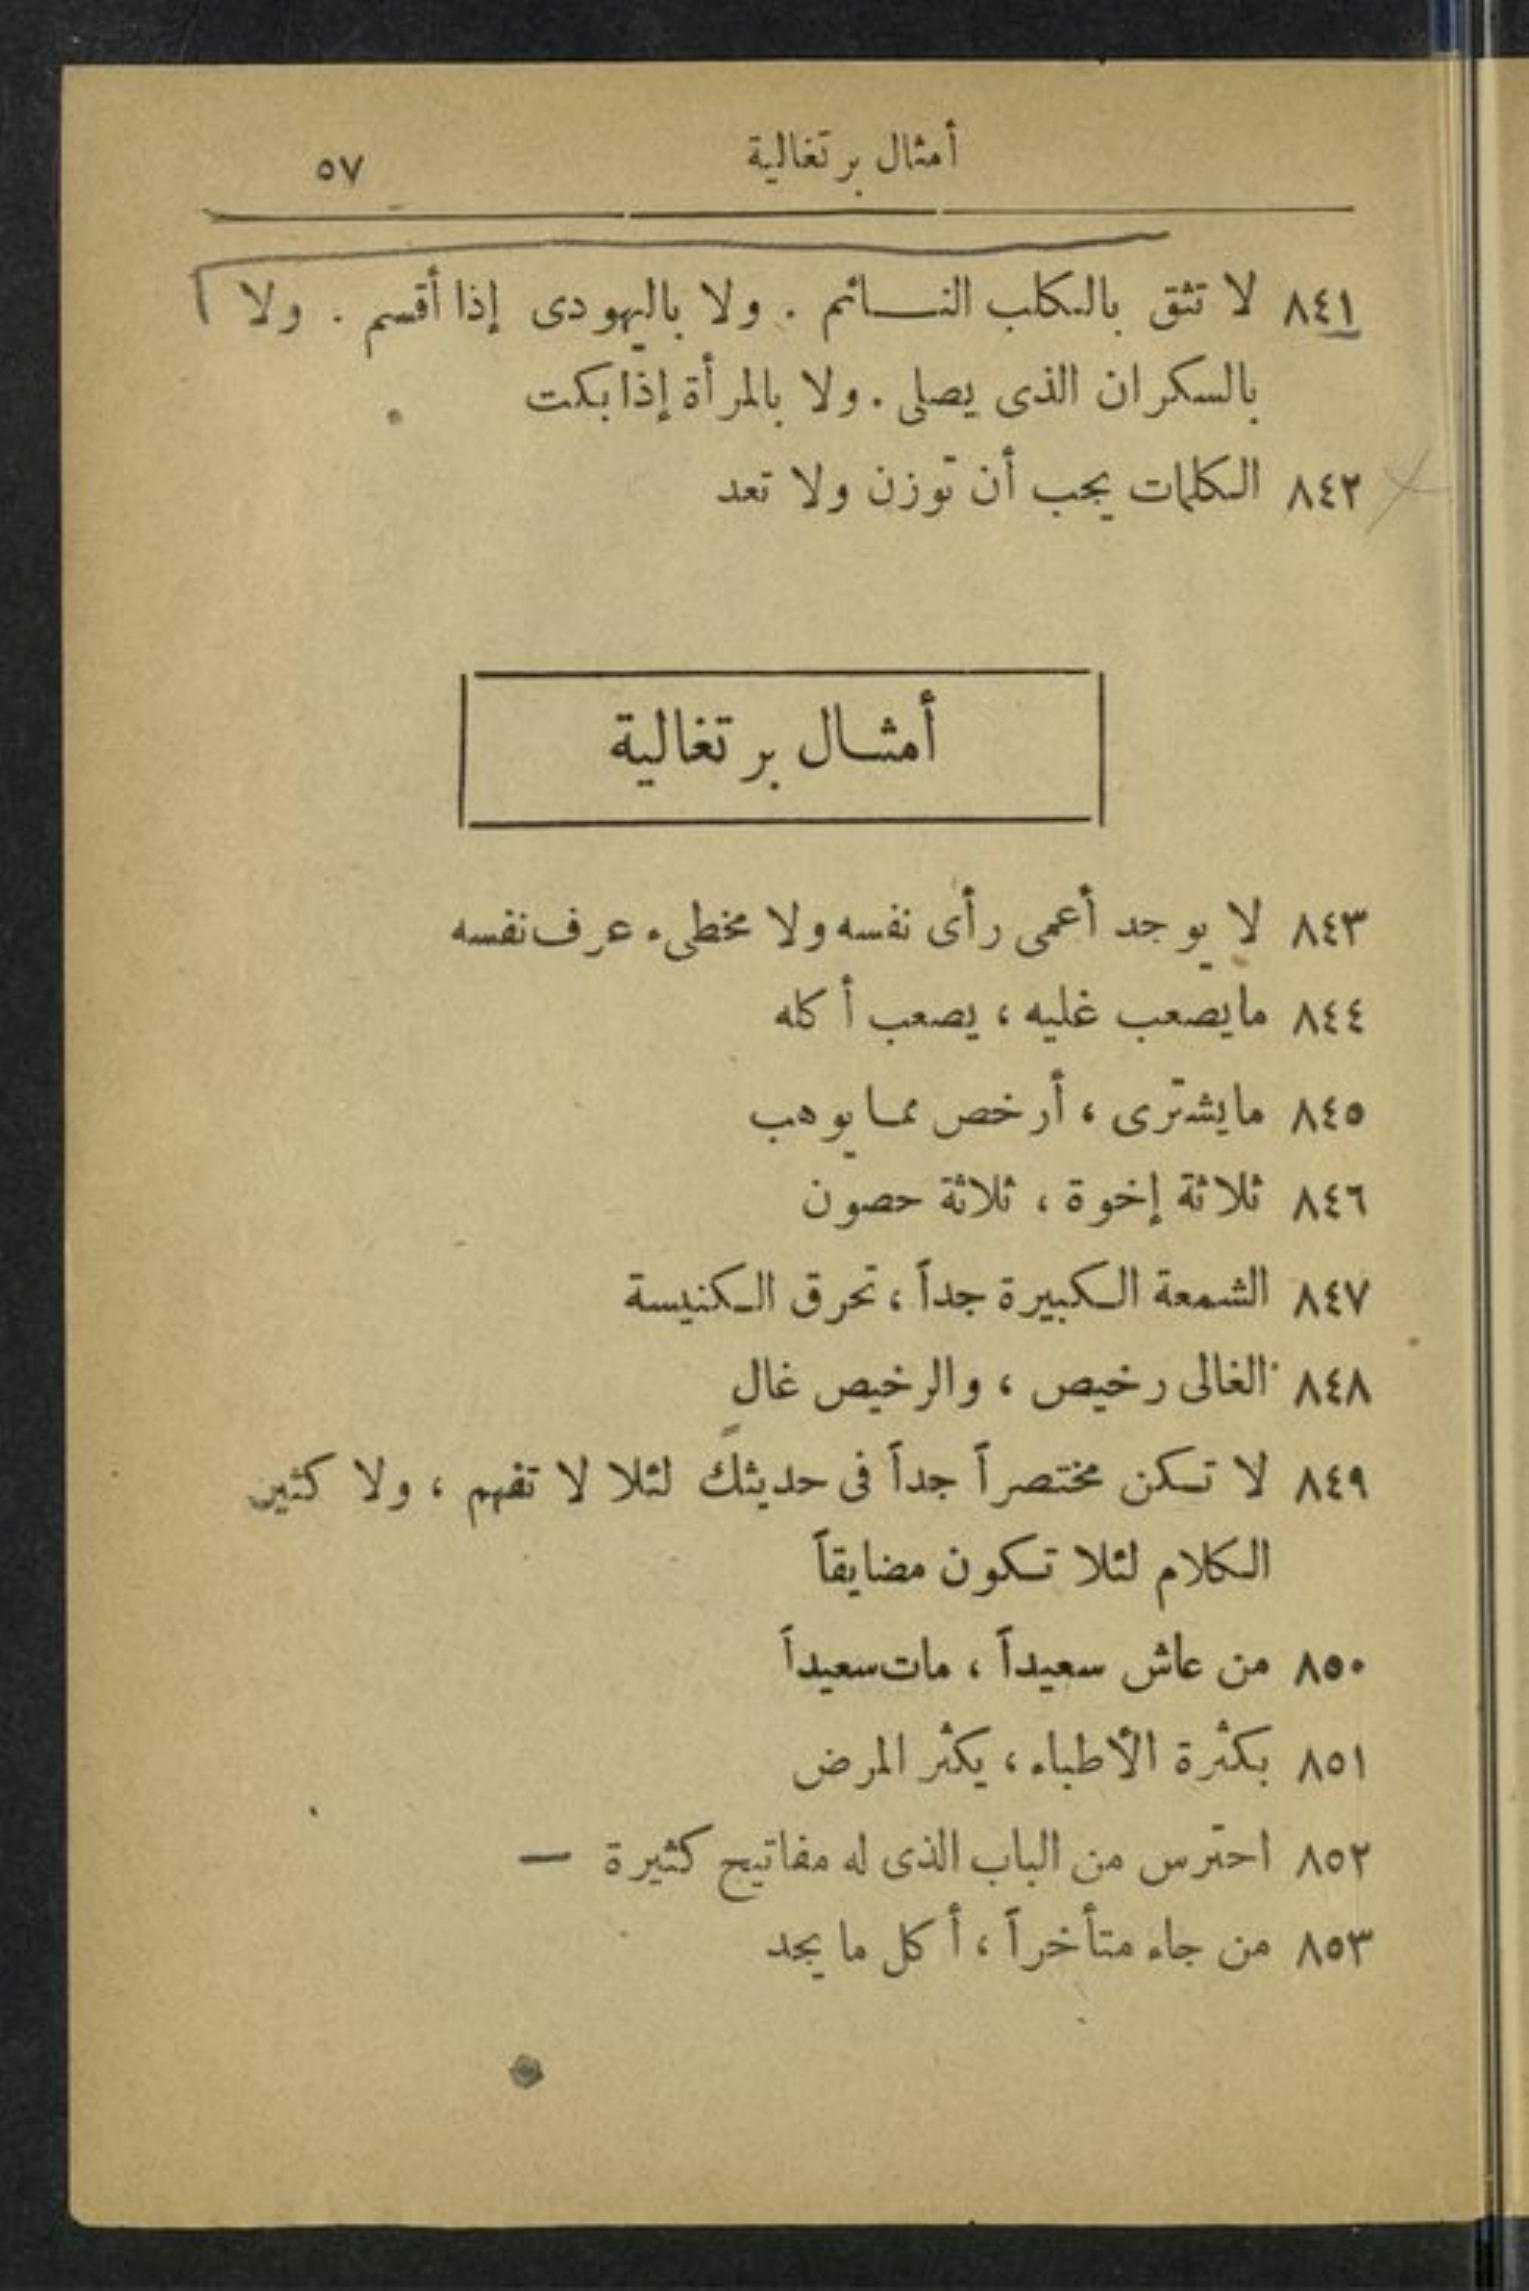 أمثال برتغالية ٥٧
٨٤١ لا تثق بالكلب النائم . ولا باليهودى إذا أقسم . ولا
بالسكران الذى يصلى . ولا بالمرأة إذا بكت
٨٤٢ الكلمات يجب أن توزن ولا تعد
أمثال برتغالية
٨٤٣ لا يوجد أعمى رأى نفسه ولا مخطىء عرف نفسه
٨٤٤ ما يصعب غليه ، يصعب أكله
٨٤٥ ما يشترى ، أرخص مما يوهب
٨٤٦ ثلاثة إخوة ، ثلاثة حصون
٨٤٧ الشمعة الكبيرة جداً ، تحرق الكنيسة
٨٤٨ الغالى رخيص ، والرخيص غالٍ
٨٤٩ لا تكن مختصراً جداً فى حديثك لئلا لا تفهم ، ولا كثير
الكلام لئلا تكون مضايقاً
٨٥٠ من عاش سعيداً ، مات سعيداً
٨٥١ بكثرة الأطباء ، يكثر المرض
٨٥٢ احترس من الباب الذى له مفاتيح كثيرة —
٨٥٣ من جاء متأخراً ، أكل ما يجد